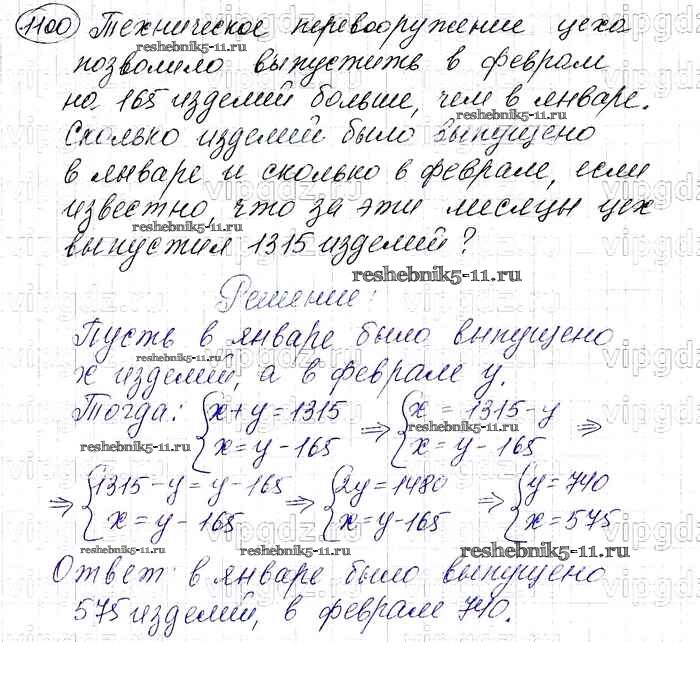 1100 Техническое перевооружение цеха
позволило выпустить в феврале
на 165 изделий больше, чем в январе.
Сколько изделий было выпущено
в январе и сколько в феврале, если
известно, что за эти месяцы цех
выпустил 1315 изделий?
Решение:
Пусть в январе было выпущено
x изделий, а в феврале y.
Тогда: { x+y=1315 x=y-165 ⇒ { x = 1315-y x=y-165 ⇒
⇒ { 1315-y=y-165 x=y-165 ⇒ { 2y=1480 x=y-165 ⇒ { y=740 x=575
Ответ: в январе было выпущено
575 изделий, в феврале 740.
reshebnik5-11.ru
vipgdz.ru